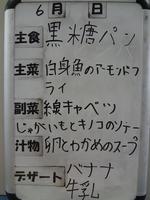 6月 日
主食 黒糖パン
主菜 白身魚のアーモンドフ
ライ
副菜 線キャベツ
じゃがいもとキノコのソテー
汁物 卵とわかめのスープ
デザート バナナ
牛乳